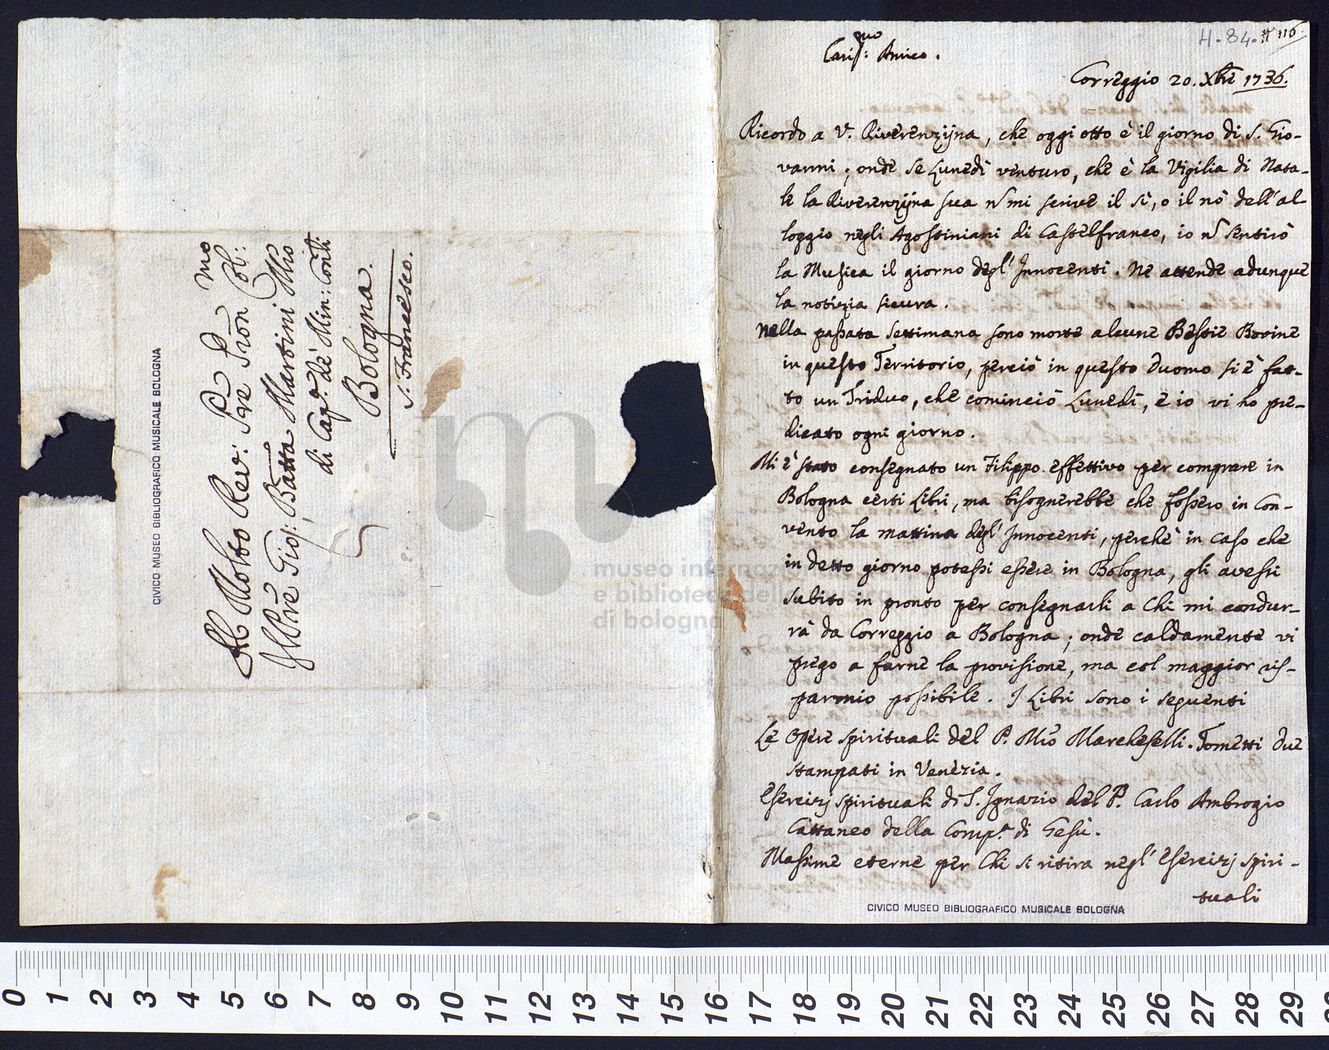 Al Molto Rev: P̃re P̃ron Col:mo
Il P̃re Gio: Batt̃a Martini M̃ro
di Cap.a de' Min: Conli
Bologna.
S. Francesco.
CIVICO MUSEO BIBLIOGRAFICO MUSICALE BOLOGNA
museo internazionale
e biblioteca della musica
di bologna
H. 84. # 116.
Carissmo: Amico.
Correggio 20. Xbre 1736.
Ricordo a V. Riverenzijna, che oggi otto è il giorno di S. Gio-
vanni; onde se Lunedì venturo, che è la Vigilia di Nata-
le la Riverenzijna sua ñ mi scrive il sì, o il nò dell'al-
loggio negli Agostiniani di Castelfranco, io ñ sentirò
la Musica il giorno degl'Innocenti. Ne attende adunque
la notizia sicura.
Nella passata settimana sono morte alcune Bestie Bovine
in questo Territorio, perciò in questo Duomo si è fat-
to un Triduo, che cominciò Lunedì, e io vi ho pre-
dicato ogni giorno.
Mi è stato consegnato un Filippo effettivo per comprare in
Bologna certi Libri, ma bisognerebbe che fossero in Con-
vento la mattina degl'Innocenti, perchè in caso che
in detto giorno potessi essere in Bologna, gli avessi
subito in pronto per consegnarli a Chi mi condur-
rà da Correggio a Bologna; onde caldamente vi
prego a farne la provisione, ma col maggior ris-
parmio possibile. I Libri sono i seguenti
Le Opere spirituali del P. M̃ro Marcheselli. Tometti due
stampati in Venezia.
Esercizj spirituali di S. Ignazio del P. Carlo Ambrogio
Cattaneo della Comp.a di Gesù.
Massime eterne per Chi si ritira negl'Esercizj spiri-
tuali
CIVICO MUSEO BIBLIOGRAFICO MUSICALE BOLOGNA
0 1 2 3 4 5 6 7 8 9 10 11 12 13 14 15 16 17 18 19 20 21 22 23 24 25 26 27 28 29